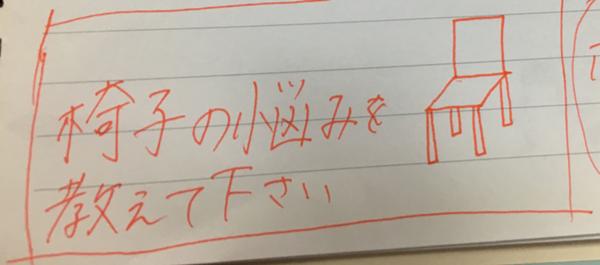 椅子の悩みを
教えて下さい